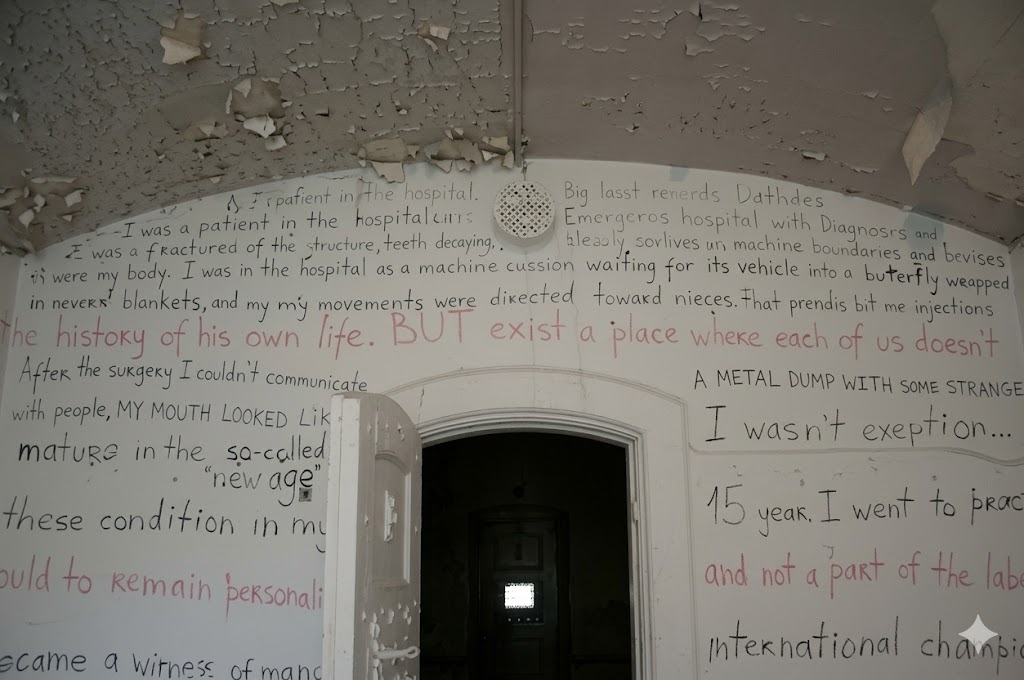 patient in the hospital.
Big lasst renerds Dathdes
I was a patient in the hospital
Emergeros hospital with Diagnosrs and
I was a fractured of the structure, teeth decaying,.
sorlives un machine boundaries and bevises
were my body. I was in the hospital as a machine cussion waiting for its vehicle into a buterfly wrapped
in neverr' blankets, and my my movements were directed toward nieces. That prendis bit me injections
The history of his own life. BUT exist a place where each of us doesn't
After the surgery I couldn't communicate
A METAL DUMP WITH SOME STRANGE
with people, MY MOUTH LOOKED LIK
I wasn't exeption...
mature in the so-called
"new age"
15 year. I went to prac
these condition in my
and not a part of the labe
ould to remain personali
international champio
ecame a witness of manc